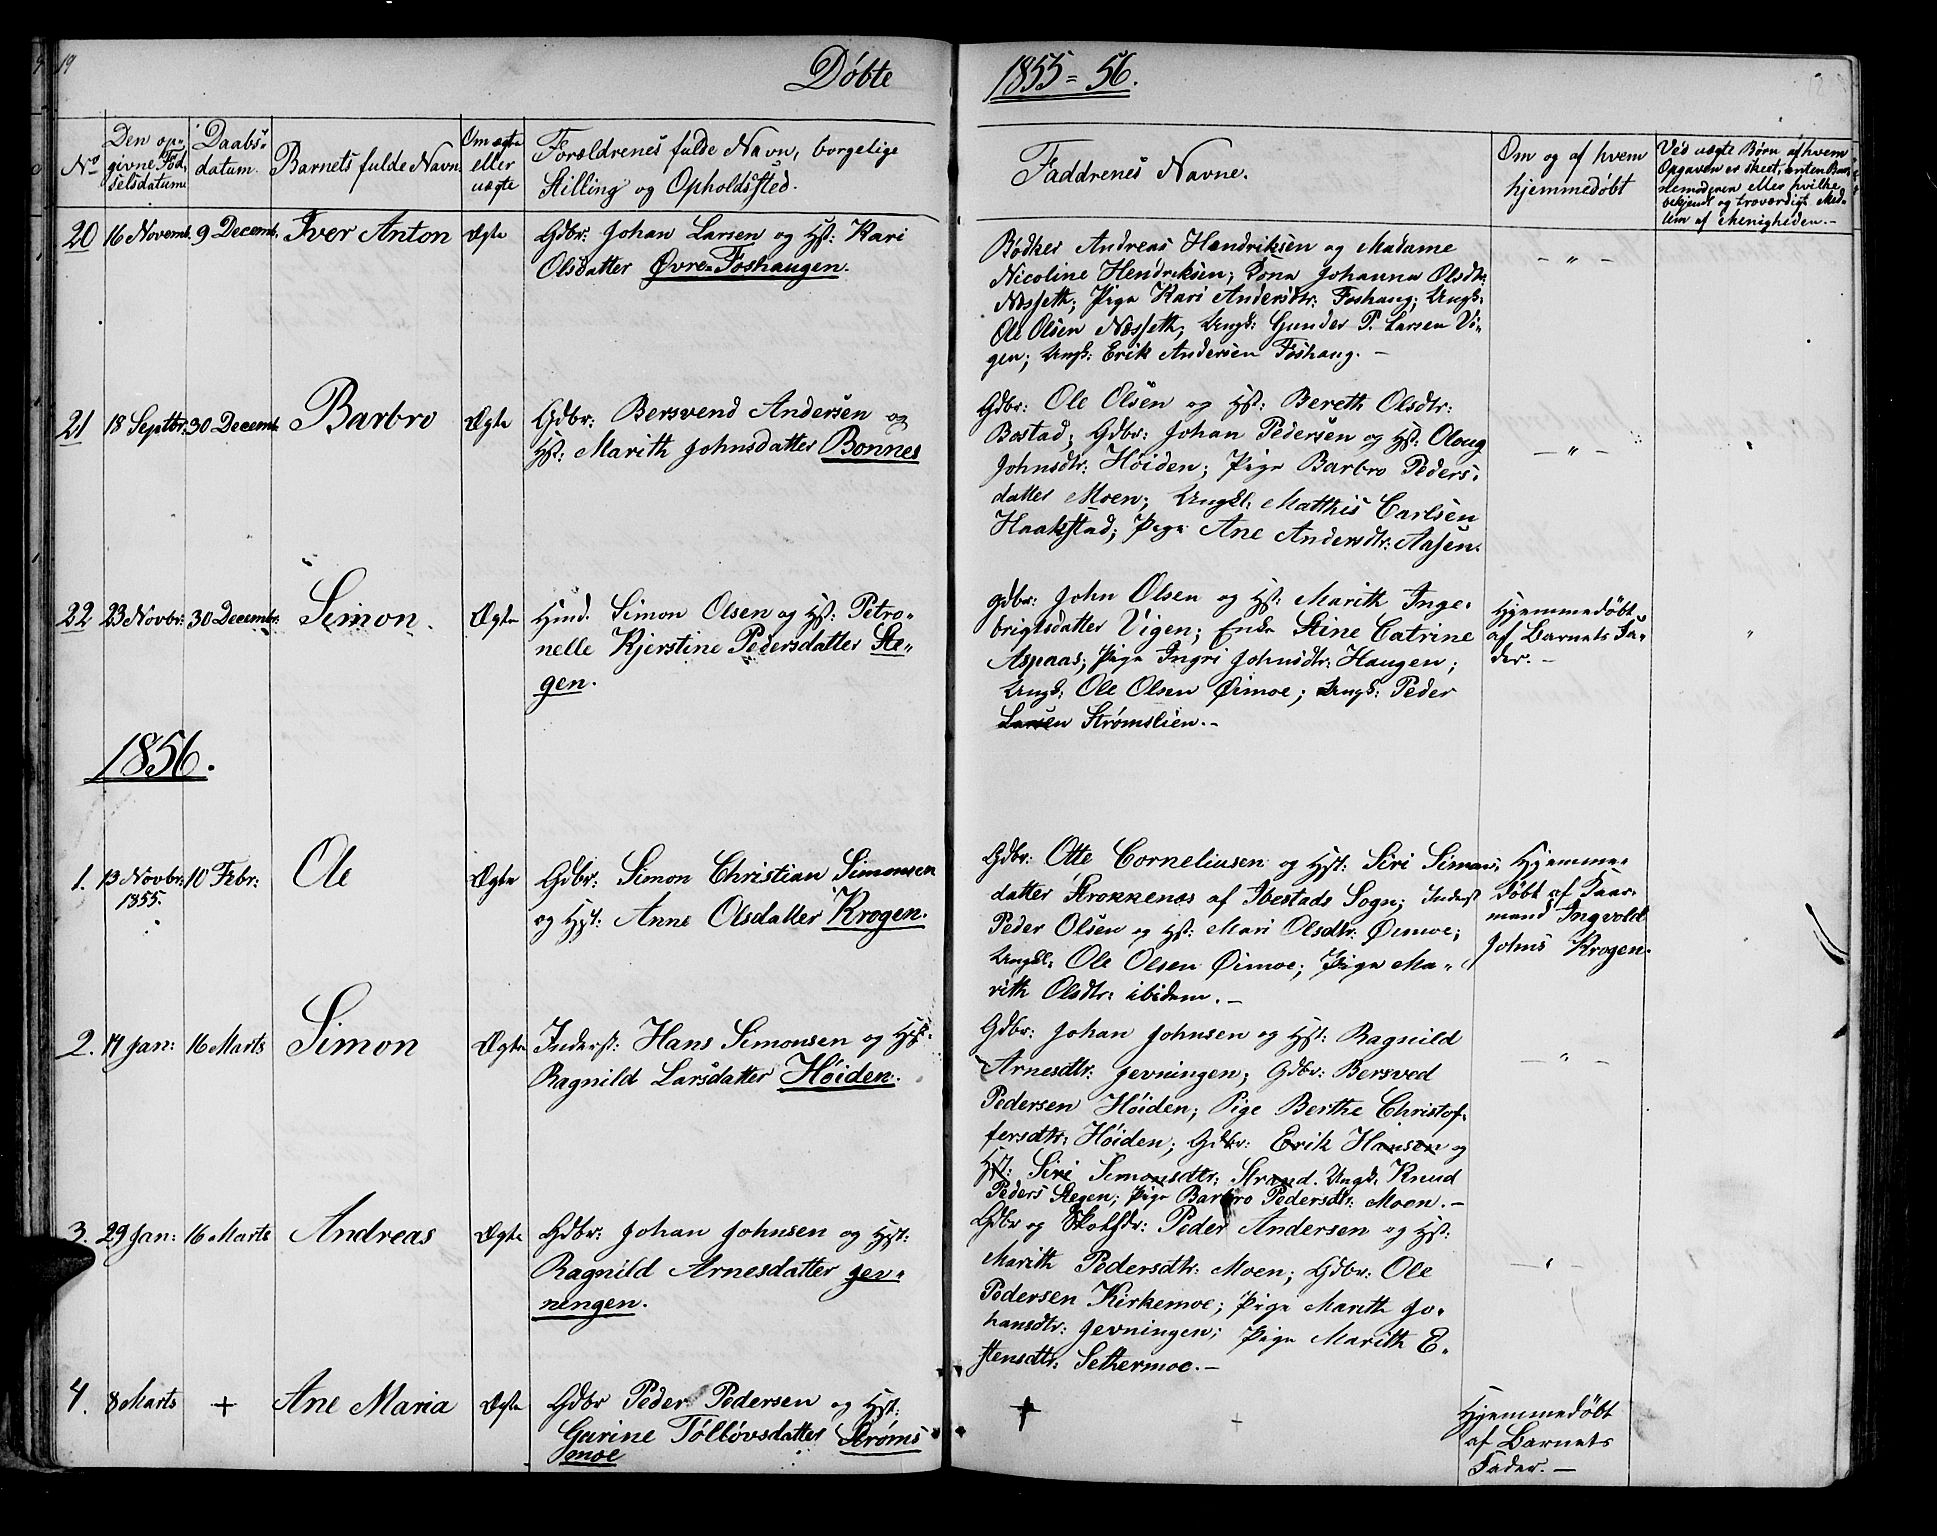 19
Døbte
1855-56.
No
Den op-
givne Fød-
selsdatum
Daabs-
datum.
Barnets fulde Navn
Om ægte
eller
uægte
Forældrenes fulde Navn, borgelige
Stilling og Opholdssted.
Faddrenes Navne.
Om og af hvem
hjemmedøbt
Ved uægte Børn af hvem
Opgaven er skeet, enten Bar-
nemoderen eller hvilke
bekjendt og troværdigt Med-
lem af Menigheden.-
20 16 Novemb. 9 Decemb. Iver Anton Ægte
Gdbr: Johan Larsen og Hst: Kari
Olsdatter Øvre-Foshaugen.
Bødker Andreas Hendriksen og Madame
Nicoline Hendriksen; Kona Johanna Olsdtr:
Næsseth; Pige Kari Andersdtr: Foshaug; Ungk:
Ole Olsen Næsseth; Ungk: Gunder P. Larsen Vi-
gen; Ungk: Erik Andersen Foshaug. -
- " -
21 18 Septbr. 30 Decemb. Barbro Ægte
Gdbr: Bersvend Andersen og
Hst: Marith Johnsdatter Bonnes
Gdbr: Ole Olsen og Hst: Bereth Olsdtr:
Bostad; Gdbr: Johan Pedersen og Hst: Oloug
Johnsdtr: Høiden; Pige Barbro Peders-
datter Moen; Ungkl: Matthis Carlsen
Haakstad; Pige Ane Andersdtr: Aasen.
- " -
22 23 Novbr: 30 Decembr: Simon. Ægte
Husd. Simon Olsen og Hst: Petro-
nelle Kjerstine Pedersdatter Ste-
gen.
Gdbr: John Olsen og Hst: Marith Inge-
brigtsdatter Vigen; Enke Stine Catrine
Aspaas; Pige Ingri Johnsdtr: Haugen;
Ungk: Ole Olsen Øimoe; Ungk: Peder
Larsen Strømslien.-
Hjemmedøbt
af Barnets Fa-
der. -
"
1856.
1. 13 Novbr: 10 Febr: Ole Ægte
1855.
Gdbr: Simon Christian Simonsen
og Hst: Anne Olsdatter Krogen.
Gdbr: Otte Corneliusen og Hst: Siri Simons-
datter Strokkenæs af Ibestads Sogn; Inderst
Peder Olsen og Hst: Mari Olsdtr: Øimoe;
Ungkl: Ole Olsen Øimoe; Pige Ma-
rith Olsdtr: ibidem. -
Hjemme-
døbt af Gaar-
mand Ingvold
Johns Krogen.
2. 17 Jan: 16 Marts Simon Ægte
Inderst: Hans Simonsen og Hst:
Ragnild Larsdatter Høiden.
Gdbr: Johan Johnsen og Hst: Ragnild
Arnesdtr: Jevningen; Gdbr: Bersved
Pedersen Høiden; Pige Berthe Christof-
fersdtr: Høiden; Gdbr: Erik Hansen og
Hst: Siri Simonsdtr: Strand. Ungk: Knud
Peders Stegen; Pige Barbro Pedersdtr: Moen. -
- " -
3. 29 Jan: 16 Marts Andreas Ægte
Gdbr: Johan Johnsen og Hst:
Ragnild Arnesdatter Jev-
ningen.
Gdbr og Skolsdr: Peder Andersen og Hst:
Marith Pedersdtr: Moen; Gdbr: Ole
Pedersen Kirkemoe; Pige Marith Jo-
hansdtr: Jevningen; Pige Marith E-
stensdtr: Sethermoe. -
- " -
4. 8 Marts + Ane Maria Ægte
Gdbr Peder Pedersen og Hst:
Gurine Tølløvsdatter Strøms
moe
+
+
Hjemmedøbt
af Barnets
Fader. -